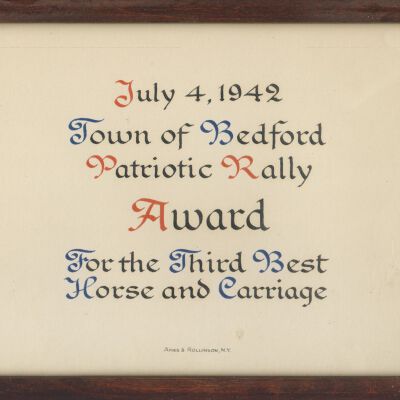 July 4, 1942
Town of Bedford
Patriotic Rally
Award
For the Third Best
Horse and Carriage
Ames & Rollinson, N.Y.